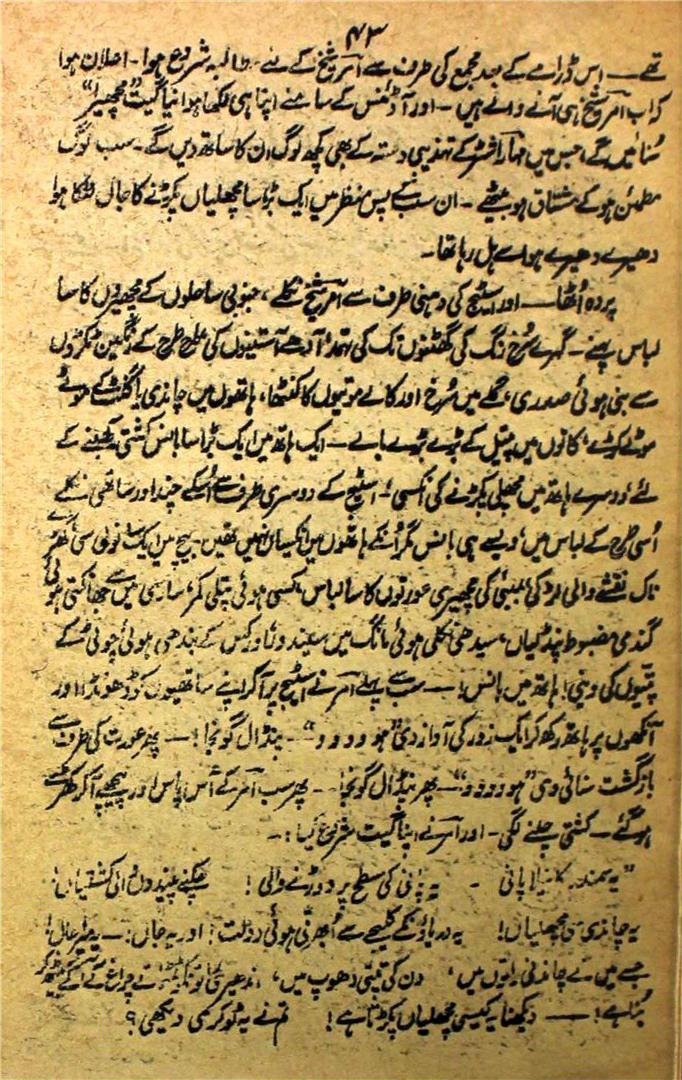 ۴۳
تھے — اس ڈرامے کے بعد مجمع کی طرف سے آمر شیخ کے لئے مطالبہ شروع ہوا۔ اعلان ہوا
کہ اب آمر شیخ ہی آنے والے ہیں ۔ اور آڈئنس کے سامنے اپنا ہی لکھا ہوا نیا گیت "مچھیرا"
سُنائیں گے، جس میں مہاراشٹر کے تہذیبی دستہ کے بھی کچھ لوگ ان کا ساتھ دیں گے۔ سب لوگ
مطمئن ہو کے مشتاق ہو بیٹھے ۔ ان سب کے پس منظر میں ایک بڑا سا مچھلیاں پکڑنے کا جال لٹکا ہوا
دھیرے دھیرے ہوا سے ہل رہا تھا۔
پردہ اُٹھا — اور اسٹیج کی دہنی طرف سے آمر شیخ نکلے، جنوبی ساحلوں کے مچھیروں کا سا
لباس پہنے ۔ گہرے سُرخ رنگ کی گھٹنوں تک کی تہمد، آدھے آستینوں کی طرح طرح کے رنگین ٹکڑوں
سے بنی ہوئی صدری، گلے میں سُرخ اور کالے موتیوں کا کنٹھا، ہاتھوں میں چاندی یا گلٹ کے موٹے
موٹے کڑے، کانوں میں پیتل کے بڑے بڑے بالے — ایک ہاتھ میں ایک بڑا سا بانس کشتی کھینے کے
لئے، دوسرے ہاتھ میں مچھلی پکڑنے کی انکسی! ۔ اسٹیج کے دوسری طرف سے اُسکے چند اور ساتھی نکلے
اُسی طرح کے لباس میں، ویسے ہی بانس مگر اُنکے ہاتھوں میں انکسیاں نہیں تھیں۔ بیچ میں ایک سانولی سی کھڑے
ناک نقشے والی لڑکی، بمبئی کی مچھیری عورتوں کا سا لباس، کسی ہوئی پتلی کمر، ساری میں سے جھانکتی ہوئی
گندمی مضبوط پنڈلیاں، سیدھی نکلی ہوئی مانگ میں سیندور اور کس کے بندھی ہوئی چوٹی کے
پتیوں کی وینی! ہاتھ میں بانس! — سب سے پہلے آمر نے اسٹیج پر آکر اپنے ساتھیوں کو ڈھونڈا اور
آنکھوں پر ہاتھ رکھ کر ایک زور کی آواز دی "ہو و و و و" — پنڈال گونجا! — پھر عورت کی طرف سے
بازگشت سنائی دی "ہو و و و و" — پھر پنڈال گونجا۔ ۔ پھر سب آمر کے آس پاس اور پیچھے آکر کھڑے
ہو گئے ۔ کشتی چلنے لگی ۔ اور آمر نے اپنا گیت شروع کیا :۔
"یہ سمندر کا نیلا پانی ۔ یہ پانی کی سطح پر دوڑنے والی! چکنے پیندوں والی کشتیاں!
یہ چاندی سی مچھلیاں! یہ دریاؤں کے کلیجے سے اُبھرتی ہوئی دولت! اور یہ جال! — یہ میرا جال!
جسے میں نے چاندنی راتوں میں، دن کی تپتی دھوپ میں، اندھیری چراغ کے آگے بیٹھ کر
بُنا ہے! — دیکھنا یہ کیسی مچھلیاں پکڑتا ہے! تم نے یہ ٹوکری دیکھی؟